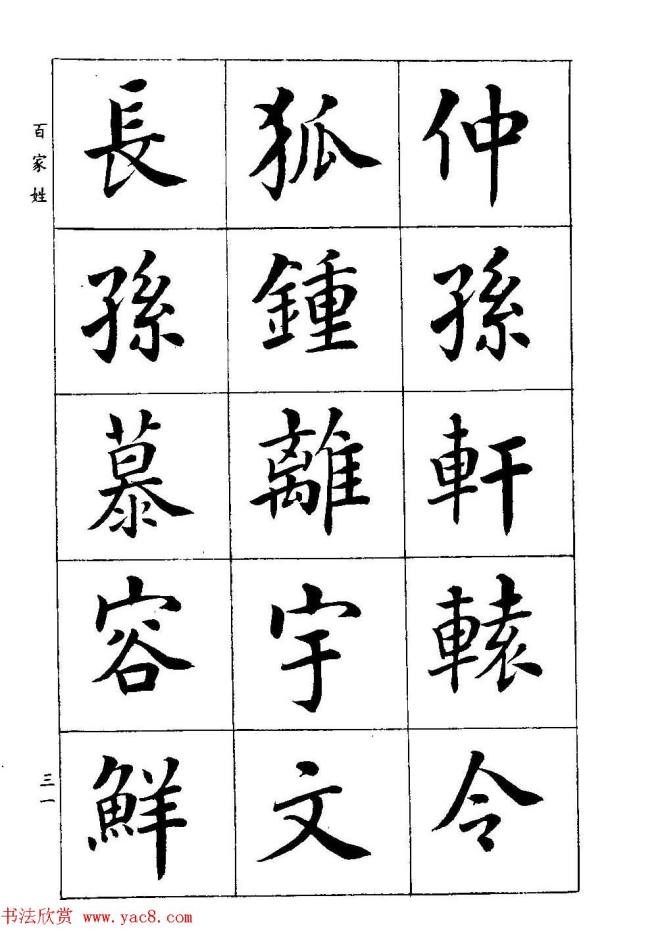 仲孫軒轅令
狐鍾離宇文
長孫慕容鮮
百家姓
三一
书法欣赏 www.yac8.com